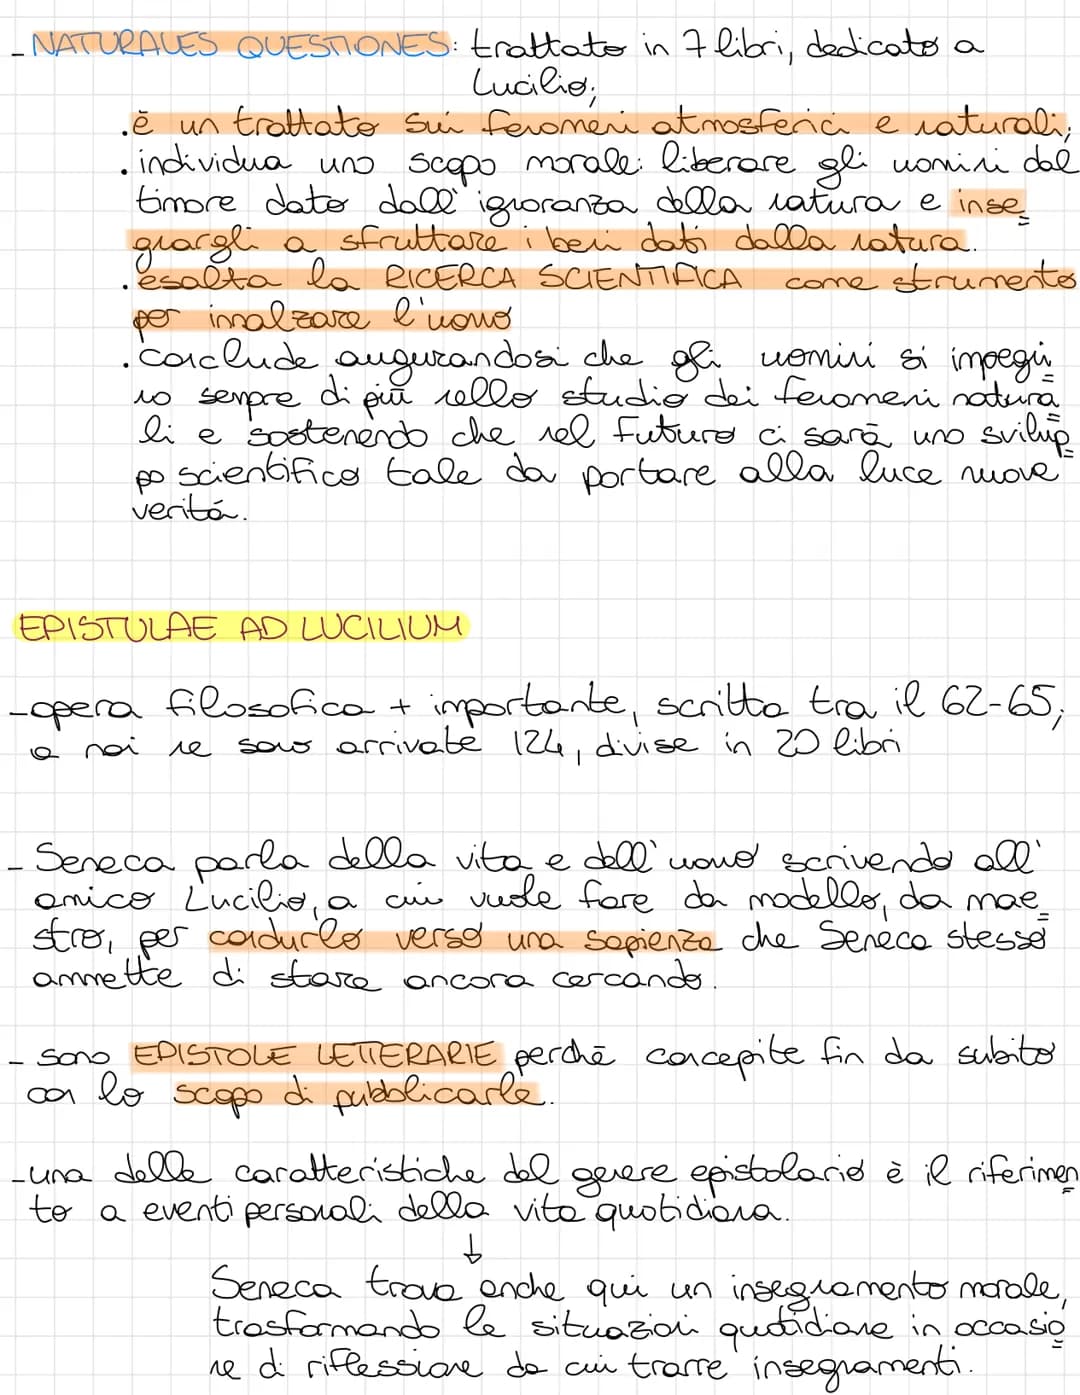 - NATURALES QUESTIONES: trattato in 7 libri, dedicato a
Lucilio;
. è un trattato sui fenomeni atmosferici e naturali;
. individua uno scopo morale: liberare gli uomini dal
timore dato dall'ignoranza della natura e inse
gnargli a sfruttare i beni dati dalla natura.
. esalta la RICERCA SCIENTIFICA come strumento
per innalzare l'uomo
. conclude augurandosi che gli uomini si impegni
no sempre di più nello studio dei fenomeni natura
li e sostenendo che nel futuro ci sarà uno svilup
po scientifico tale da portare alla luce nuove
verità.
EPISTULAE AD LUCILIUM
- opera filosofica + importante, scritta tra il 62-65;
a noi ne sono arrivate 124, divise in 20 libri
- Seneca parla della vita e dell'uomo scrivendo all'
amico Lucilio, a cui vuole fare da modello, da mae
stro, per condurlo verso una sapienza che Seneca stesso
ammette di stare ancora cercando.
- sono EPISTOLE LETTERARIE perchè concepite fin da subito
con lo scopo di pubblicarle.
- una delle caratteristiche del genere epistolario è il riferimen
to a eventi personali della vita quotidiana.
↓
Seneca trova anche qui un insegnamento morale,
trasformando le situazioni quotidiane in occasio
ne di riflessione da cui trarre insegnamenti.